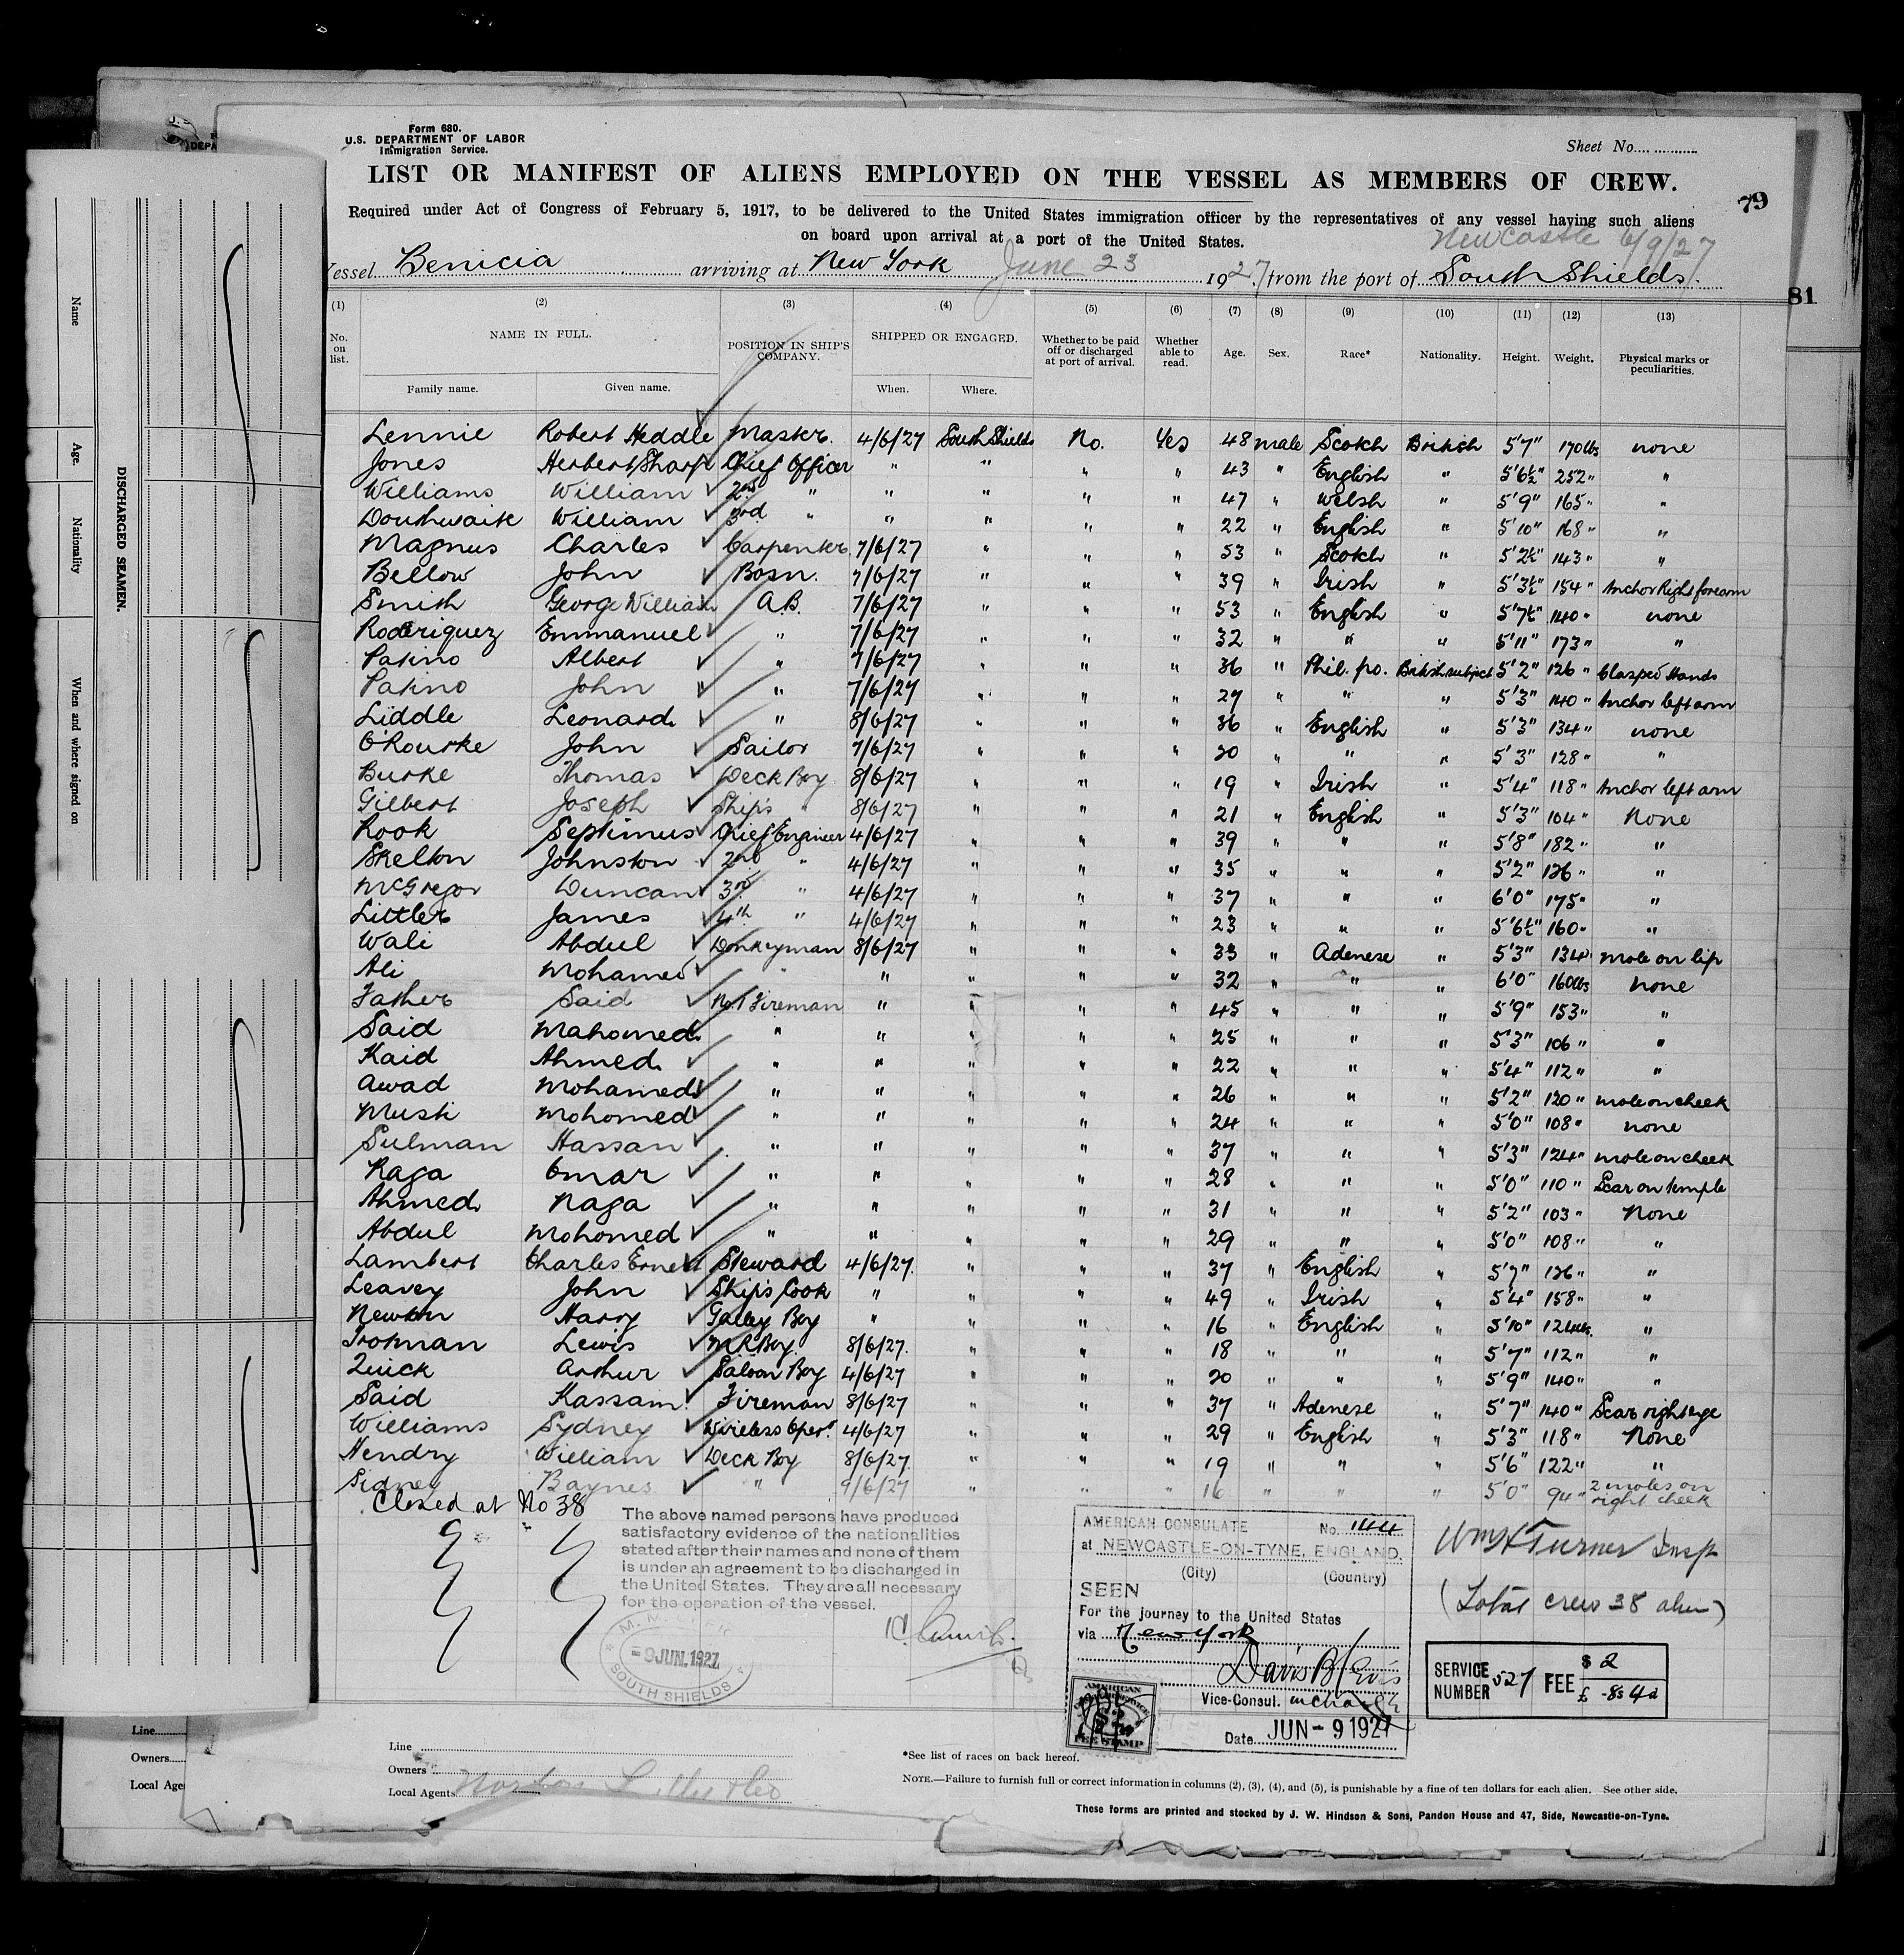 Form 680.
U.S. DEPARTMENT OF LABOR
Immigration Service.
Sheet No.
LIST OR MANIFEST OF ALIENS EMPLOYED ON THE VESSEL AS MEMBERS OF CREW.
79
Required under Act of Congress of February 5, 1917, to be delivered to the United States immigration officer by the representatives of any vessel having such aliens
on board upon arrival at a port of the United States.
Newcastle 6/9/27
Vessel Benicia arriving at New York June 23 1927, from the port of South Shields.
81
(1) (2) (3) (4) (5) (6) (7) (8) (9) (10) (11) (12) (13)
No. on list. NAME IN FULL. POSITION IN SHIP'S COMPANY. SHIPPED OR ENGAGED. Whether to be paid off or discharged at port of arrival. Whether able to read. Age. Sex. Race* Nationality. Height. Weight. Physical marks or peculiarities.
Family name. Given name. When. Where.
Lennie Robert Heddle Master. 4/6/27 South Shields No. Yes 48 male Scotch British 5'7" 170lbs none
Jones Herbert Sharp Chief Officer " " " " 43 " English " 5'6½" 252 " "
Williams William 2nd " " " " " 47 " Welsh " 5'9" 165 " "
Douthwaite William 3rd " " " " " 22 " English " 5'10" 168 " "
Magnus Charles Carpenter 7/6/27 " " " 53 " Scotch " 5'2½" 143 " "
Bellow John Bosn. 7/6/27 " " " 39 " Irish " 5'3½" 154 " Anchor Right forearm
Smith George William A.B. 7/6/27 " " " 53 " English " 5'7½" 140 " none
Roderiguez Emmanuel " 7/6/27 " " " 32 " " " 5'11" 173 " "
Patino Albert " 7/6/27 " " " 36 " Phil. po. British subject 5'2" 126 " Clasped Hands
Patino John " 7/6/27 " " " 27 " " " 5'3" 140 " Anchor left arm
Liddle Leonard " 8/6/27 " " " 36 " English " 5'3" 134 " none
O'Rourke John Sailor 7/6/27 " " " 20 " " " 5'3" 128 " "
Burke Thomas Deck Boy 8/6/27 " " " 19 " Irish " 5'4" 118 " Anchor left arm
Gilbert Joseph Ship's " 8/6/27 " " " 21 " English " 5'3" 104 " None
Rook Septimus Chief Engineer 4/6/27 " " " 39 " " " 5'8" 182 " "
Skelton Johnston 2nd " 4/6/27 " " " 35 " " " 5'2" 136 " "
McGregor Duncan 3rd " 4/6/27 " " " 37 " " " 6'0" 175 " "
Littler James 4th " 4/6/27 " " " 23 " " " 5'6½" 160 " "
Wali Abdul Donkeyman 8/6/27 " " " 33 " Adenese " 5'3" 134 " mole on lip
Ali Mohamed " " " " " 32 " " " 6'0" 160lbs none
Father Said No.1 Fireman " " " " 45 " " " 5'9" 153 " "
Said Mahomed " " " " " 25 " " " 5'3" 106 " "
Kaid Ahmed " " " " " 22 " " " 5'4" 112 " "
Awad Mohamed " " " " " 26 " " " 5'2" 120 " mole on cheek
Musti Mohomed " " " " " 24 " " " 5'0" 108 " none
Sulman Hassan " " " " " 37 " " " 5'3" 124 " mole on cheek
Raga Omar " " " " " 28 " " " 5'0" 110 " Scar on temple
Ahmed Naga " " " " " 31 " " " 5'2" 103 " None
Abdul Mohomed " " " " " 29 " " " 5'0" 108 " "
Lambert Charles Ernest Steward 4/6/27. " " " 37 " English " 5'7" 136 " "
Leavey John Ship's Cook " " " " 49 " Irish " 5'4" 158 " "
Newton Harry Galley Boy " " " " 16 " English " 5'10" 124lbs. "
Trotman Lewis M.R.Boy 8/6/27. " " " 18 " " " 5'7" 112 " "
Quick Arthur Saloon Boy 4/6/27 " " " 20 " " " 5'9" 140 " "
Said Kassam Fireman 8/6/27 " " " 37 " Adenese " 5'7" 140 " Scar right eye
Williams Sydney Wireless Oper. 4/6/27 " " " 29 " English " 5'3" 118 " None
Hendry William Deck Boy 8/6/27. " " " 19 " " " 5'6" 122 " "
Sidney Baynes " 9/6/27 " " " 16 " " " 5'0" 94 " 2 moles on right cheek
Closed at No 38
The above named persons have produced
satisfactory evidence of the nationalities
stated after their names and none of them
is under an agreement to be discharged in
the United States. They are all necessary
for the operation of the vessel.
9 JUN. 1927
SOUTH SHIELDS
AMERICAN CONSULATE No. 144
at NEWCASTLE-ON-TYNE, ENGLAND.
(City) (Country)
SEEN
For the journey to the United States
via New York
Vice-Consul. in charge
Date JUN - 9 1927
AMERICAN
$2
FEE STAMP
Wm H Turner Insp
(Total crew 38 alien)
SERVICE NUMBER 527 FEE $ 2 £ -8s 4d
Line
Owners
Local Agents Norton Lilly & Co
*See list of races on back hereof.
NOTE.—Failure to furnish full or correct information in columns (2), (3), (4), and (5), is punishable by a fine of ten dollars for each alien. See other side.
These forms are printed and stocked by J. W. Hindson & Sons, Pandon House and 47, Side, Newcastle-on-Tyne.
DISCHARGED SEAMEN.
Name
Age.
Nationality
When and where signed on
Line
Owners
Local Age